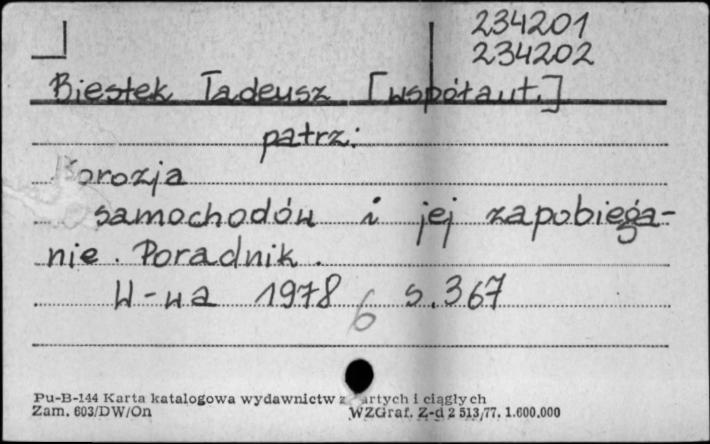 234201
234202
Biestek Tadeusz [współaut.]
patrz:
Korozja
samochodów i jej zapobiega-
nie. Poradnik.
W-wa 1978 s. 367
6
Pu-B-144 Karta katalogowa wydawnictw z artych i ciągłych
Zam. 603/DW/On WZGraf. Z-d 2 513/77. 1.600.000